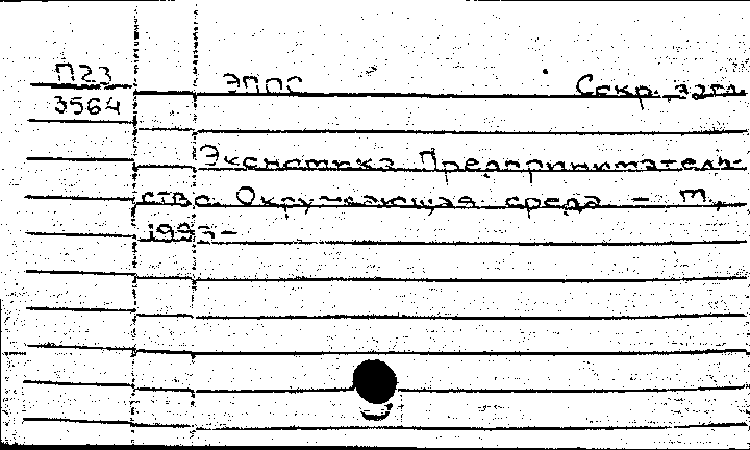 П23
3564
ЭППС Сокр. загл.
Экономика. Предприниматель-
ство. Окружающая среда. — М.,
1993-